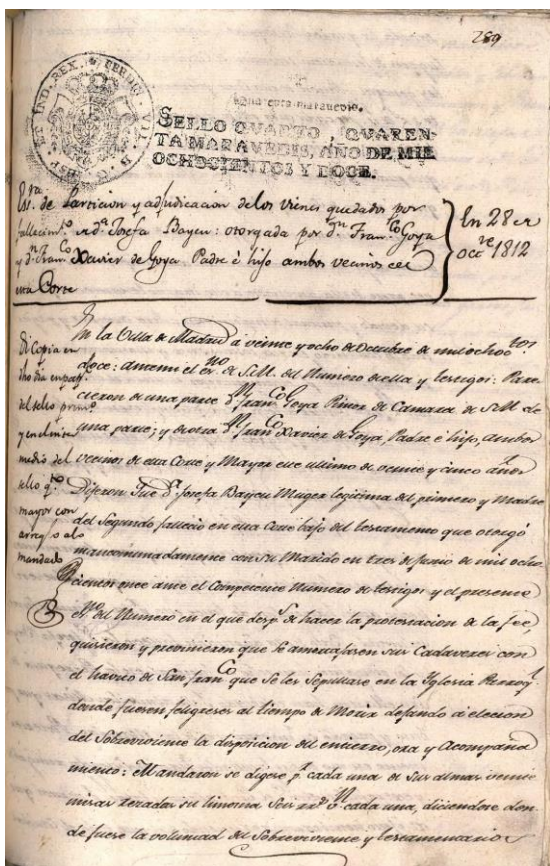 289
HISP. ET IND. REX. FERDIN. VII. D. G.
SELLO QVARTO, QVAREN-
TA MARAVEDIS, AÑO DE MIL
OCHOCIENTOS Y DOCE.
Ess.ra de Particion y adjudicacion de los vienes quedados por
fallecim.to de d.a Josefa Bayeu: otorgada por d.n Fran.co Goya
y d.n Fran.co Xavier de Goya Padre é hijo ambos vecinos de
esta Corte
En 28 de
Oct.re 1812
Di Copia en
dho dia en pap.l
del sello prim.o
y en el inter
medio del
sello q.to
mayor con
arreg.o a lo
mandado
En la Villa de Madrid á veinte y ocho de Octubre de mil ochoc.tos
doce: ante mi el Es.no de S.M. del Numero de ella y testigos: Pare
cieron de una parte D.n Fran.co Goya Pintor de Camara de S.M. de
una parte; y de otra D.n Fran.co Xavier de Goya, Padre é hijo, ambos
vecinos de esta Corte y Mayor este ultimo de veinte y cinco años
Dijeron Que D.a Josefa Bayeu Muger legitima del primero y Madre
del Segundo fallecio en esta Corte bajo del testamento que otorgó
mancomunadamente con su Marido en tres de Junio de mil ocho
cientos once ante el Competente Numero de testigos y el presente
Es.no del Numero en el que desp.s de hacer la protestacion de la fee,
quisieron y previnieron que se amortajasen sus Cadaveres con
el havito de San Fran.co que se les Sepultase en la Yglesia Parroq.l
donde fuesen feligreses al tiempo de Morir dejando á eleccion
del Sobreviviente la disposicion del entierro, ora y Acompaña
miento: Mandaron se digese p.r cada una de sus almas veinte
misas rezadas su limosna Seis r.s v.n cada una, diciendose don
de fuese la voluntad del Sobreviviente y testamentarios